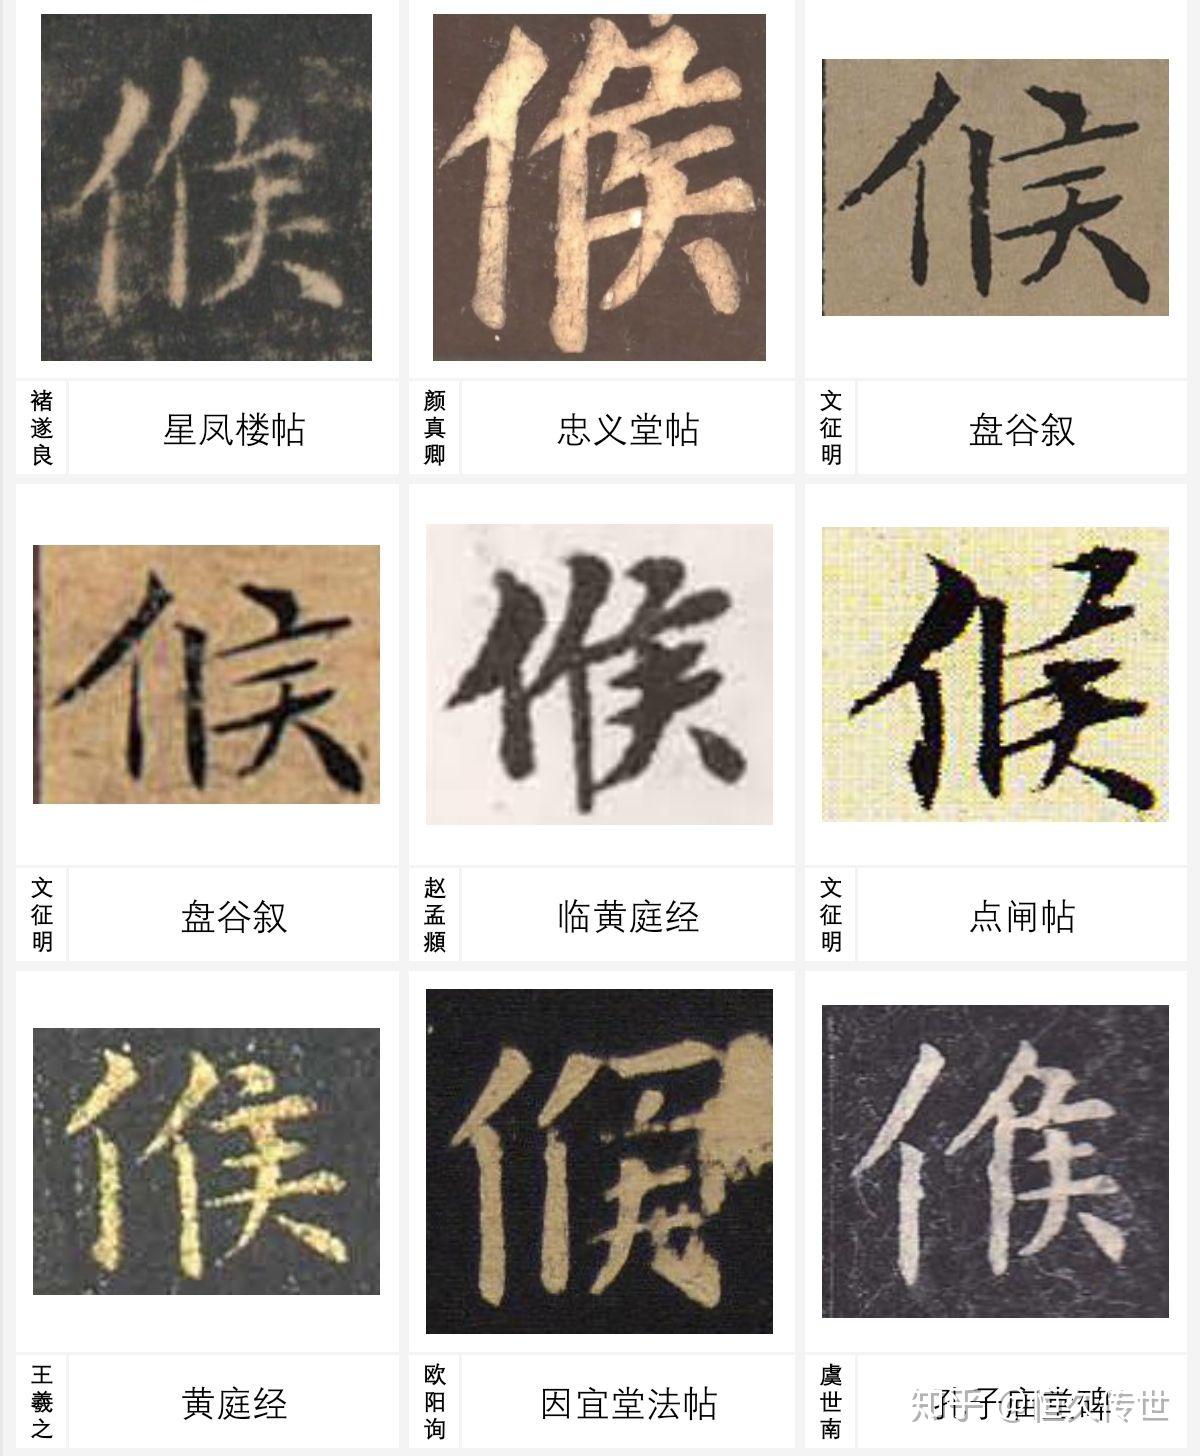 候 候 候
褚遂良 星凤楼帖
颜真卿 忠义堂帖
文征明 盘谷叙
候 候 候
文征明 盘谷叙
赵孟頫 临黄庭经
文征明 点闸帖
候 候 候
王羲之 黄庭经
欧阳询 因宜堂法帖
虞世南 孔子庙堂碑
知乎 @恒久传世